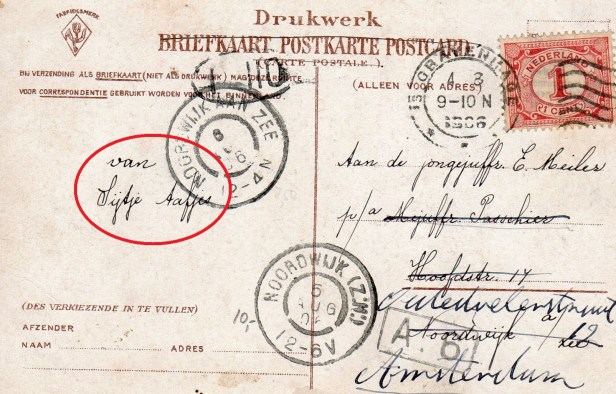 FABRIEKSMERK
Drukwerk
BRIEFKAART. POSTKARTE POSTCARD
(CARTE POSTALE.)
BIJ VERZENDING ALS BRIEFKAART (NIET ALS DRUKWERK) MAG DEZE RUIMTE
VOOR CORRESPONDENTIE GEBRUIKT WORDEN VOOR HET BINNENLAND.
(ALLEEN VOOR ADRES)
'S GRAVENHAGE
4 8
9-10 N
1906
NEDERLAND
1
CENT
NOORDWIJK AAN ZEE
6
12-4N
van
Sijtje Aafjes
Aan de jongejuffr. E. Meiler
p/a Mejuffr. Passchier
Hoofdstr. 14
Noordwijk a/
zee
12
Amsterdam
NOORDWIJK (Z.H.)
6
AUG
12-6V
10,-
A. 6
(DES VERKIEZENDE IN TE VULLEN)
AFZENDER
NAAM ADRES